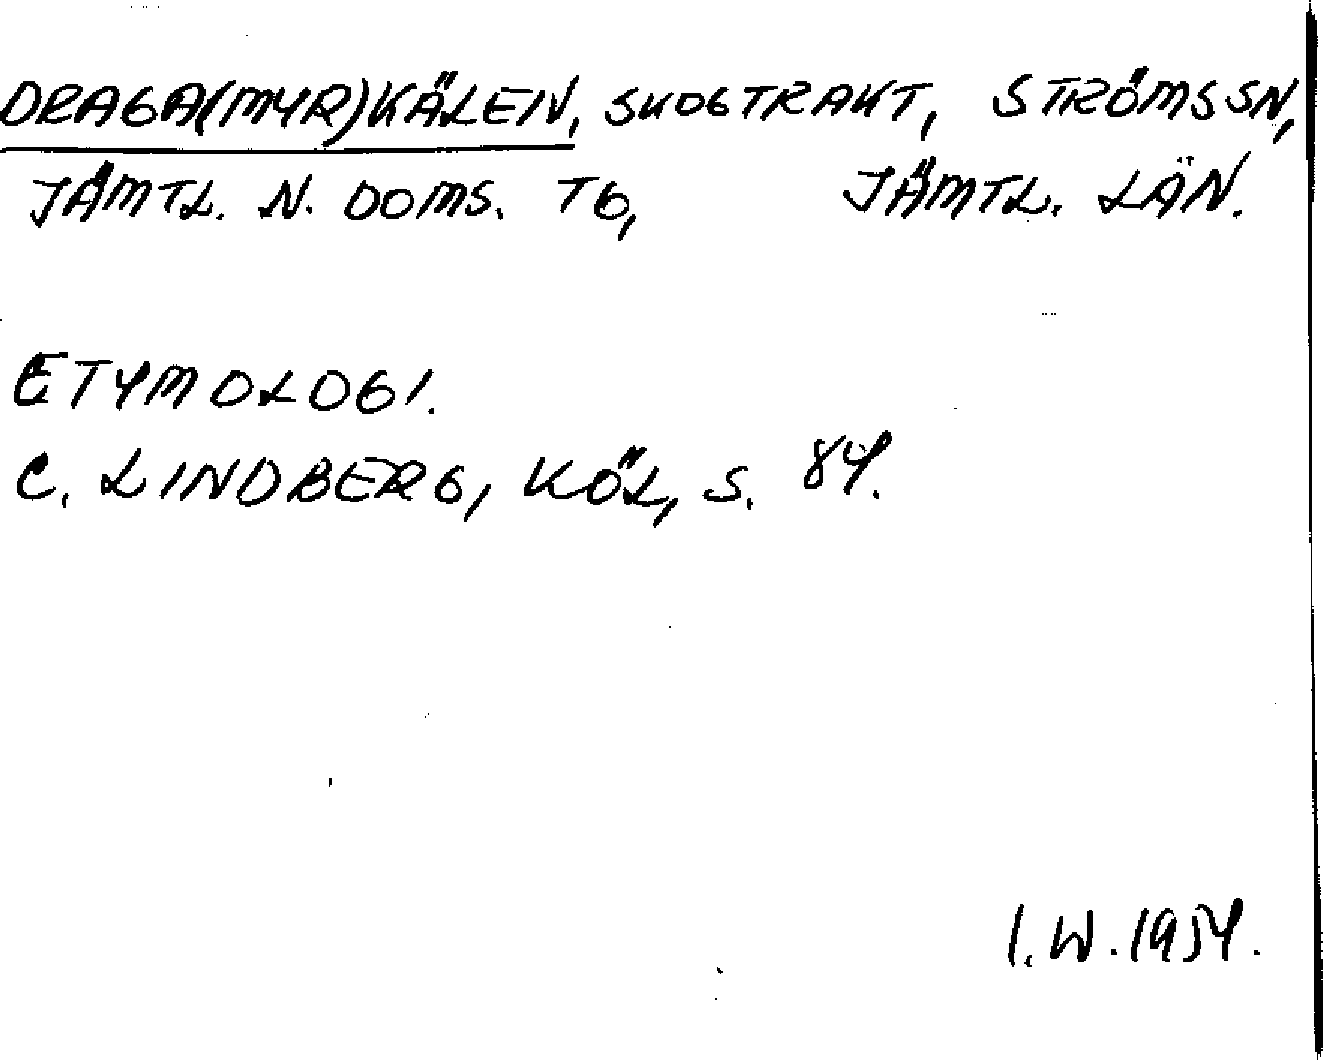 DRAGA(MYR)KÄLEN, SKOGTRAKT, STRÖMS SN,
JÄMTL. N. DOMS. TG, JÄMTL. LÄN.
ETYMOLOGI.
C. LINDBERG, KÖL, S. 84.
I. W. 1954.